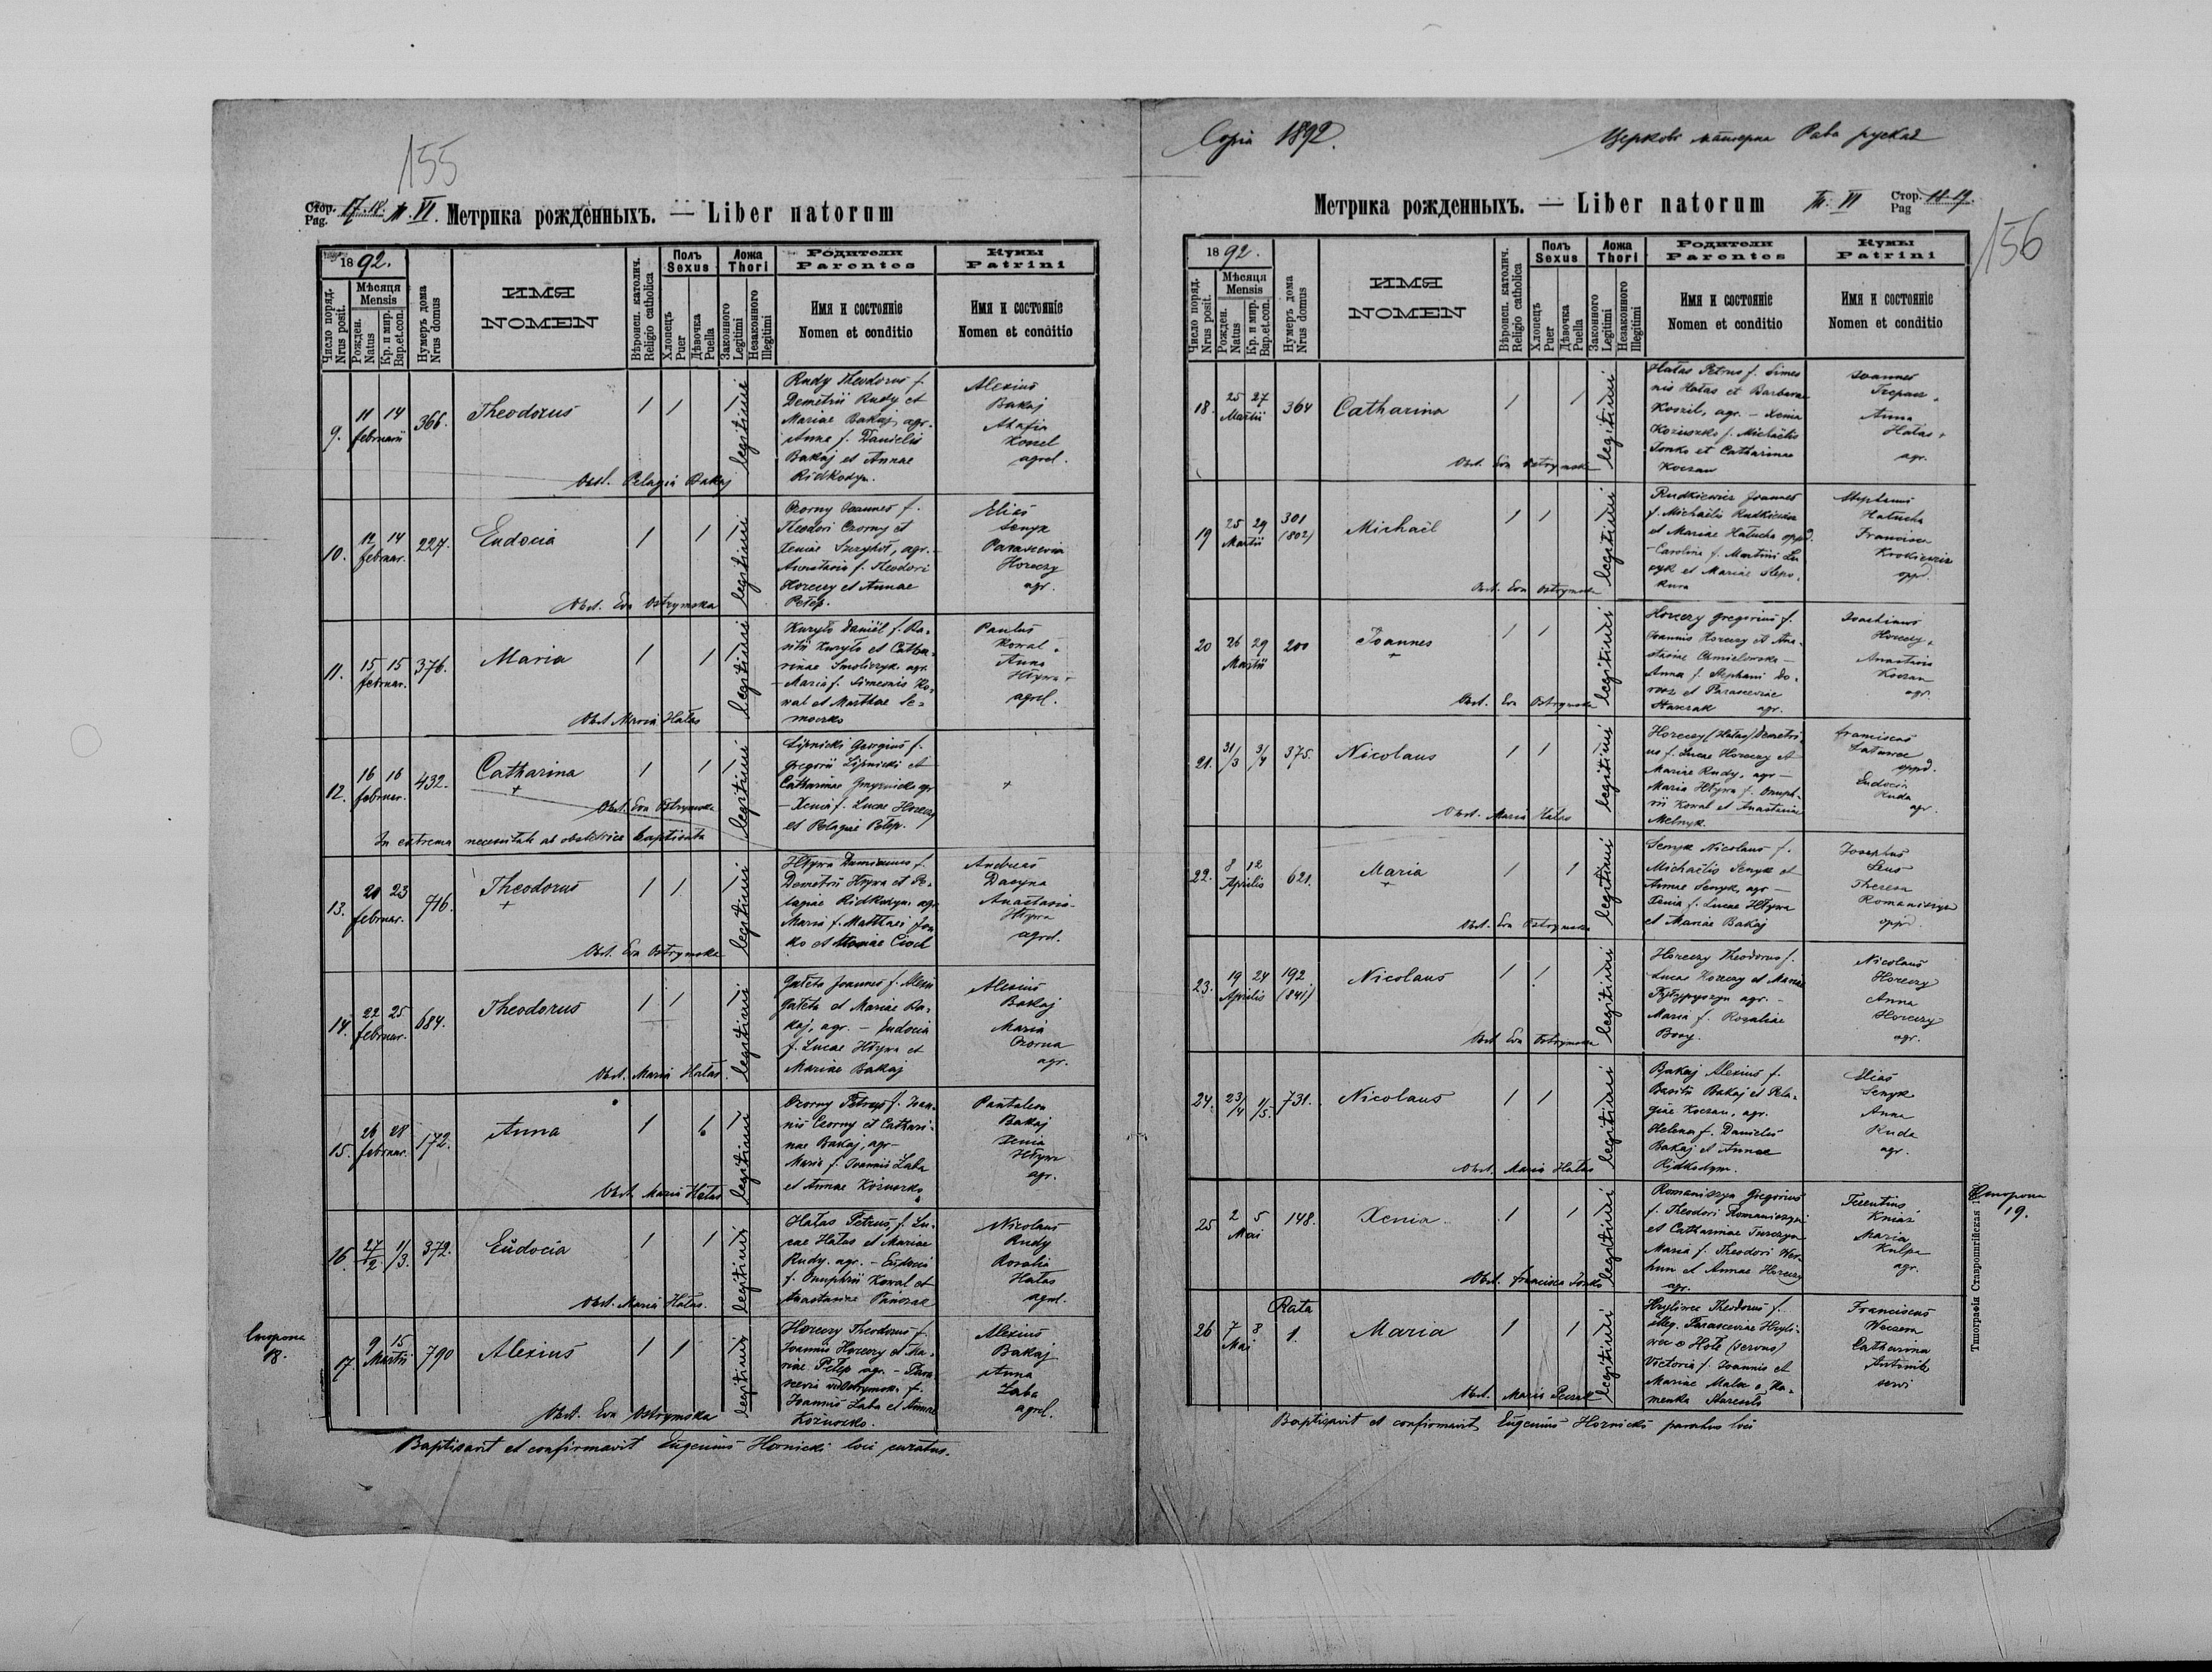 155
Стор. 17.-18. Tt. VI. Метрика рожденныхъ. — Liber natorum
Pag.
1892.
Число поряд. Nrus posit.
Мѣсяця Mensis
Рожден. Natus
Кр. и мир. Bap.et.con.
Нумеръ дома Nrus domus
ИМЯ
NOMEN
Вѣроисп. католич. Religio catholica
Полъ Sexus
Хлопецъ Puer
Дѣвочка Puella
Ложа Thori
Законного Legitimi
Незаконного Illegitimi
Родители
Parentes
Имя и состояніе
Nomen et conditio
Кумы
Patrini
Имя и состояніе
Nomen et conditio
9. 11 14 februarii 366. Theodorus / / / legitimi
Rudy Theodorus f.
Demetrii Rudy et
Mariae Bakaj, agr.
Anna f. Danielis
Bakaj et Annae
Ridkodym.
Alexius
Bakaj
Ahafia
agrel.
Obst. Pelagia Bakaj
10. 12 14 februar. 227. Eudocia / / / legitimi
Czorny Joannes f.
Theodori Czorny et
Xeniae agr. —
Anastasia f. Theodori
Horeczy et Annae
Petep.
Elias
Senyk
Parascevia
Horeczy
agr.
Obst. Eva Ostrymska
11. 15 15 februar. 376. Maria / / / legitimi
Kuryło Daniël f. Ba-
silii Kuryło et Catha-
rinae Smoliczyk agr.
— Maria f. Simeonis Ko-
wal et Marthae Se-
moczko
Paulus
Kowal.
Anna
Hływa
agrel.
Obst. Maria Hałas
12. 16 16 februar. 432. Catharina + / / / legitimi
Lipnicki Georgius f.
Gregorii Lipnicki et
Catharinae agr
— Xenia f. Lucae Horeczy
et Pelagiae Petep.
+
Obst. Eva Ostrymska
In extrema necessitate ab obstetrice baptisata
13. 20 23 februar. 716. Theodorus + / / / legitimi
Hływa Damianus f.
Demetrii Hływa et Pe-
lagiae Ridkodym. agr
Maria f. Matthaei Jon
ko et Mariae Ciod
Andreas
Daczyna
Anastasia
Hływa
agrel.
Obst. Eva Ostrymska
14. 22 25 februar. 684. Theodorus / / / legitimi
Gałeta Joannes f. Alexii
Gałeta et Mariae Ba-
kaj, agr. — Eudocia
f. Lucae Hływa et
Mariae Bakaj
Alexius
Bakaj
Maria
Czorna
agr.
Obst. Maria Hałas.
15. 26 28 februar. 172. Anna / / / legitimi
Czorny Petrus f. Joan-
nis Czorny et Cathari-
nae Bakaj, agr —
Maria f. Joannis Łaba
et Annae Koziuszko
Pantaleon
Bakaj
Xenia
Hływa
agr.
Obst. Maria Hałas
16. 27/2 1/3. 372. Eudocia / / / legitimi
Hałas Petrus, f. Lu-
cae Hałas et Mariae
Rudy. agr. — Eudocia
f. Onuphrii Kowal et
Anastasiae Pańczak
Nicolaus
Rudy
Rosalia
Hałas
agrel.
Obst. Maria Hałas.
Сторона
18.
17. 9 15 Martii 790 Alexius / / / legitimi
Horeczy Theodorus f.
Joannis Horeczy et Ma-
riae Petep agr. — Para-
scevia f.
Joannis Łaba et Annae
Koziuszko.
Alexius
Bakaj
Anna
Łaba
agrel.
Obst. Eva Ostrymska
Baptisavit et confirmavit Eugenius Hornicki loci curatus.
Copia 1892.
Церковь матерна Рава руская
156
Метрика рожденныхъ. — Liber natorum Tt. VI Стор. 18-19.
Pag
1892.
Число поряд. Nrus posit.
Мѣсяця Mensis
Рожден. Natus
Кр. и мир. Bap.et.con.
Нумеръ дома Nrus domus
ИМЯ
NOMEN
Вѣроисп. католич. Religio catholica
Полъ Sexus
Хлопецъ Puer
Дѣвочка Puella
Ложа Thori
Законного Legitimi
Незаконного Illegitimi
Родители
Parentes
Имя и состояніе
Nomen et conditio
Кумы
Patrini
Имя и состояніе
Nomen et conditio
18. 25 27 Martii 364 Catharina / / legitimi
Hałas Petrus f. Simeo
nis Hałas et Barbarae
Koszil, agr. — Xenia
Koziuszko f. Michaëlis
Jonko et Catharinae
Koczan
Joannes
Anna
Hałas
agr.
Obst. Eva Ostrymska
19 25 29 Martii 301 (802) Michaël / / legitimi
Rudkiewicz Joannes
f. Michaëlis Rudkiewicz
et Mariae Hałucha oppd.
— Carolina f. Martini Lu-
czyk et Mariae Slepo-
kura
Stephanus
Hałucha
Francisca
oppd.
Obst. Eva Ostrymska
20 26 29 Martii 200 Joannes + / / legitimi
Horeczy Gregorius f.
Joannis Horeczy et Ana-
stasiae Chmielowska —
Anna f. Stephani
et Parasceviae
agr.
Joachimus
Horeczy
Anastasia
Koczan
agr.
Obst. Eva Ostrymska
21. 31/3 3/4 375. Nicolaus / / legitimi
Horeczy (Hałas) Demetri-
us f. Lucae Horeczy et
Mariae Rudy, agr —
Maria Hływa f. Onuph-
rii Kowal et Anastasiae
Melnyk.
Franciscus
oppd.
Eudocia
Ruda
agr.
Obst. Maria Hałas
22. 8 12 Aprilis 621. Maria + / / / legitimi
Senyk Nicolaus f.
Michaëlis Senyk et
Annae Senyk, agr —
Xenia f. Lucae Hływa
et Mariae Bakaj
Josephus
Theresa
Romaniszyn
oppd
Obst. Eva Ostrymska
23. 19 24 Aprilis 192 (841) Nicolaus / / / legitimi
Horeczy Theodorus f.
Lucae Horeczy et Mariae
agr. —
Maria f. Rozaliae
Nicolaus
Horeczy
Anna
Horeczy
agr.
Obst. Eva Ostrymska
24. 23/4 1/5. 731. Nicolaus / / / legitimi
Bakaj Alexius f.
Basilii Bakaj et Pela-
giae Koczan, agr.
Helena f. Danielis
Bakaj et Annae
Ridkodym.
Elias
Senyk
Anna
Ruda
agr.
Obst. Maria Hałas
25 2 5 Mai 148. Xenia / / / legitimi
Romaniszyn Gregorius
f. Theodori Romaniszyn
et Catharinae Turczyn
Maria f. Theodori Wor-
hun et Annae Horeczy
agr.
Terentius
Kniaź
Maria
Kulpa
agr.
Obst. Francisca Jonko
Сторона
19.
26 7 8 Mai Rata 1. Maria / / / legitimi
Hryliwec Theodorus f.
illeg. Parasceviae Hryli-
wec e Hole (servus)
Victoria f. Joannis et
Mariae Malec e Ka-
menka Staresoło
Franciscus
Catharina
Antonik
servi
Obst. Maria
Baptisavit et confirmavit Eugenius Hornicki parochus loci
Типографія Ставропигійская